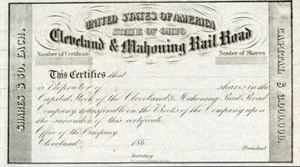 UNITED STATES OF AMERICA
STATE OF OHIO
Cleveland & Mahoning Rail Road
Number of Certificate
Number of Shares
SHARES $50. EACH.
CAPITAL $
This Certifies that
is Proprietor of shares in the
Capital Stock of the Cleveland & Mahoning Rail Road
Company, transferable on the Books of the Company upon
the surrender of this certificate.
Office of the Company
Cleveland 186
President
Secretary